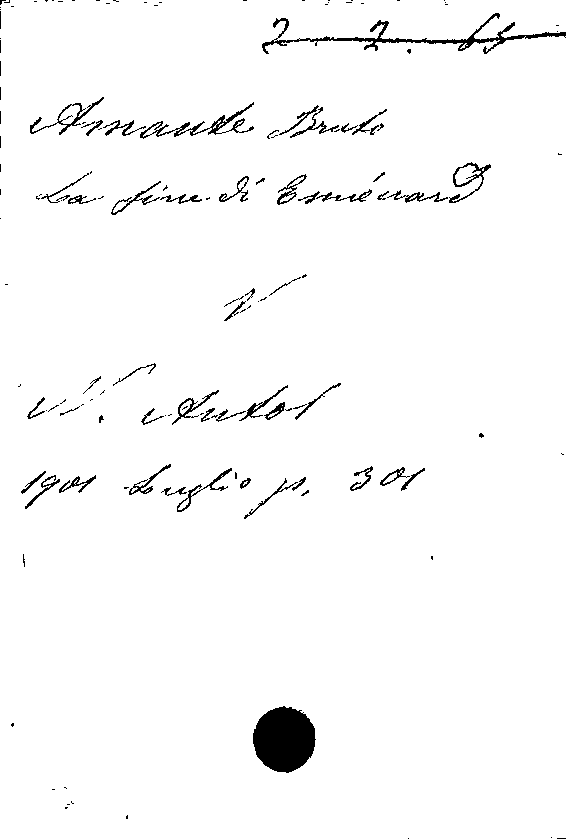 2. 2. 65
Amante Bruto
La fine di Esménard
V
N. Antol
1901 Luglio p. 301